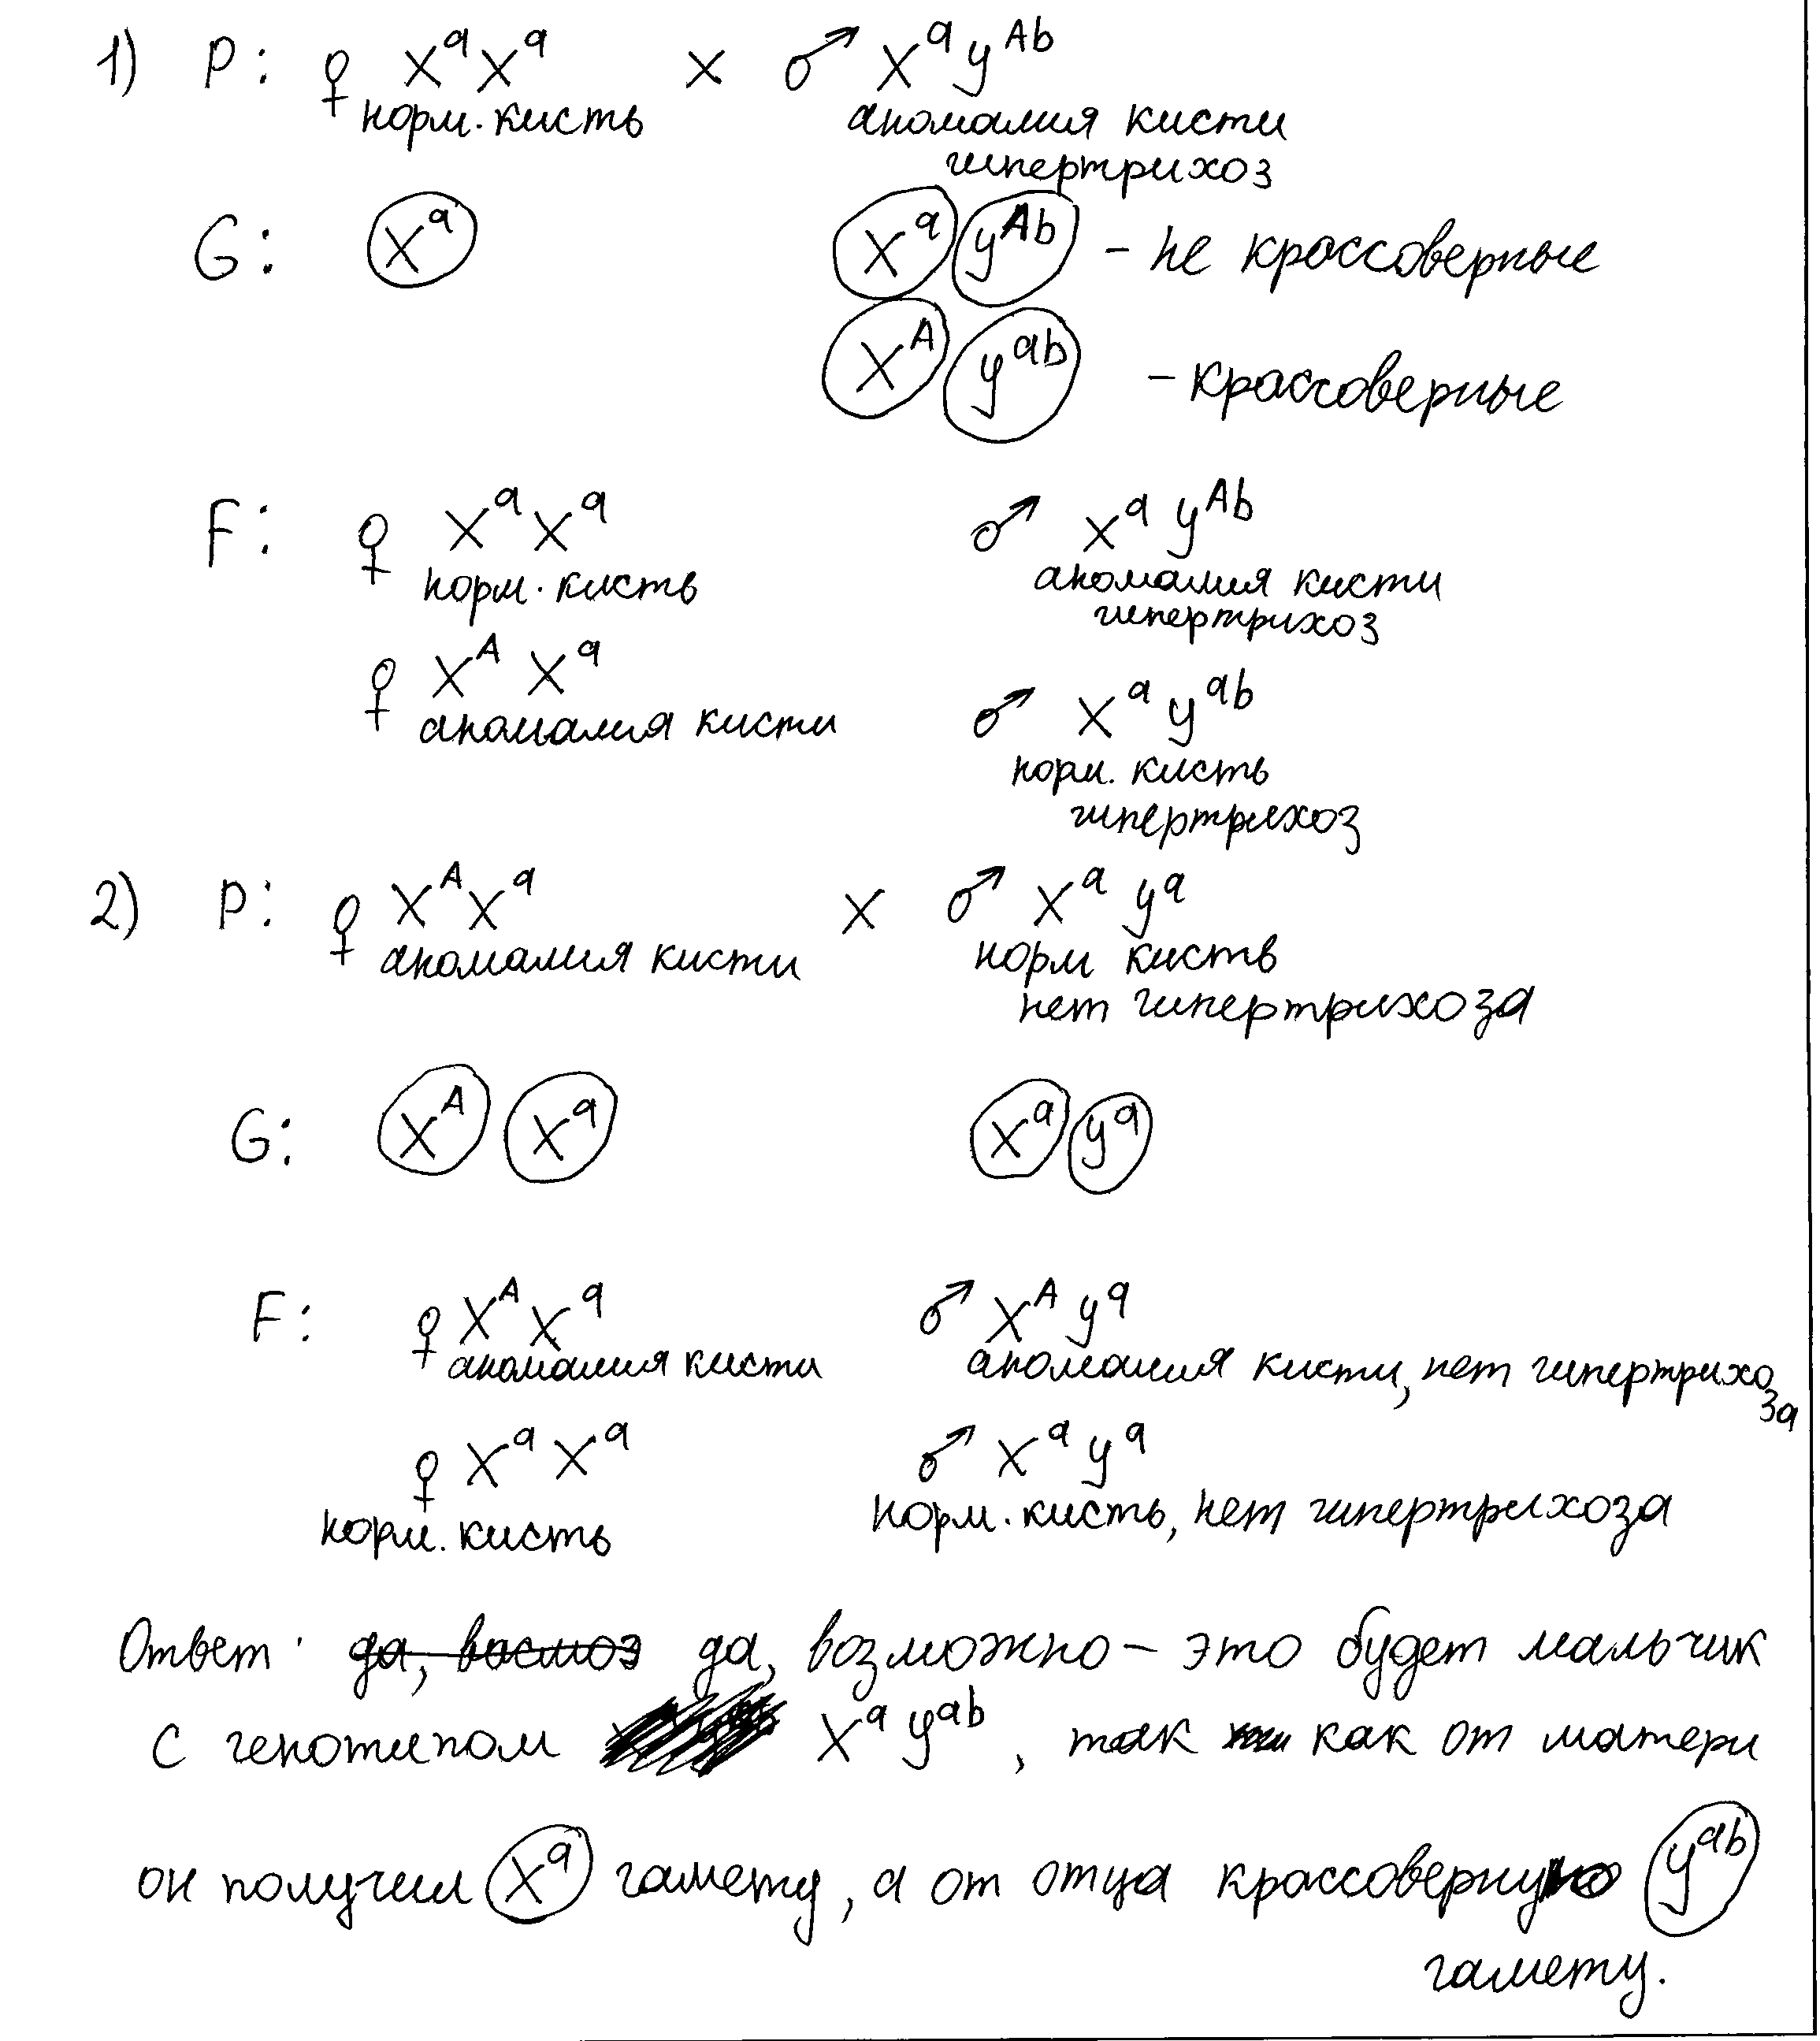 1) P: ♀ XᵃXᵃ × ♂ Xᵃ yᴬᵇ
норм. кисть аномалия кисти
гипертрихоз
G: Xᵃ Xᵃ yᴬᵇ - не крассоверные
Xᴬ yᵃᵇ - крассоверные
F: ♀ Xᵃ Xᵃ ♂ Xᵃ yᴬᵇ
норм. кисть аномалия кисти
гипертрихоз
♀ Xᴬ Xᵃ ♂ Xᵃ yᵃᵇ
аномалия кисти норм. кисть
гипертрихоз
2) P: ♀ XᴬXᵃ × ♂ Xᵃ yᵃ
аномалия кисти норм кисть
нет гипертрихоза
G: Xᴬ Xᵃ Xᵃ yᵃ
F: ♀ Xᴬ Xᵃ ♂ Xᴬ yᵃ
аномалия кисти аномалия кисти, нет гипертрихо
за
♀ Xᵃ Xᵃ ♂ Xᵃ yᵃ
норм. кисть норм. кисть, нет гипертрихоза
Ответ: да, возмоз да, возможно – это будет мальчик
с генотипом Xᵃ yᵃᵇ, так как от матери
он получил Xᵃ гамету, а от отца крассоверную yᵃᵇ
гамету.